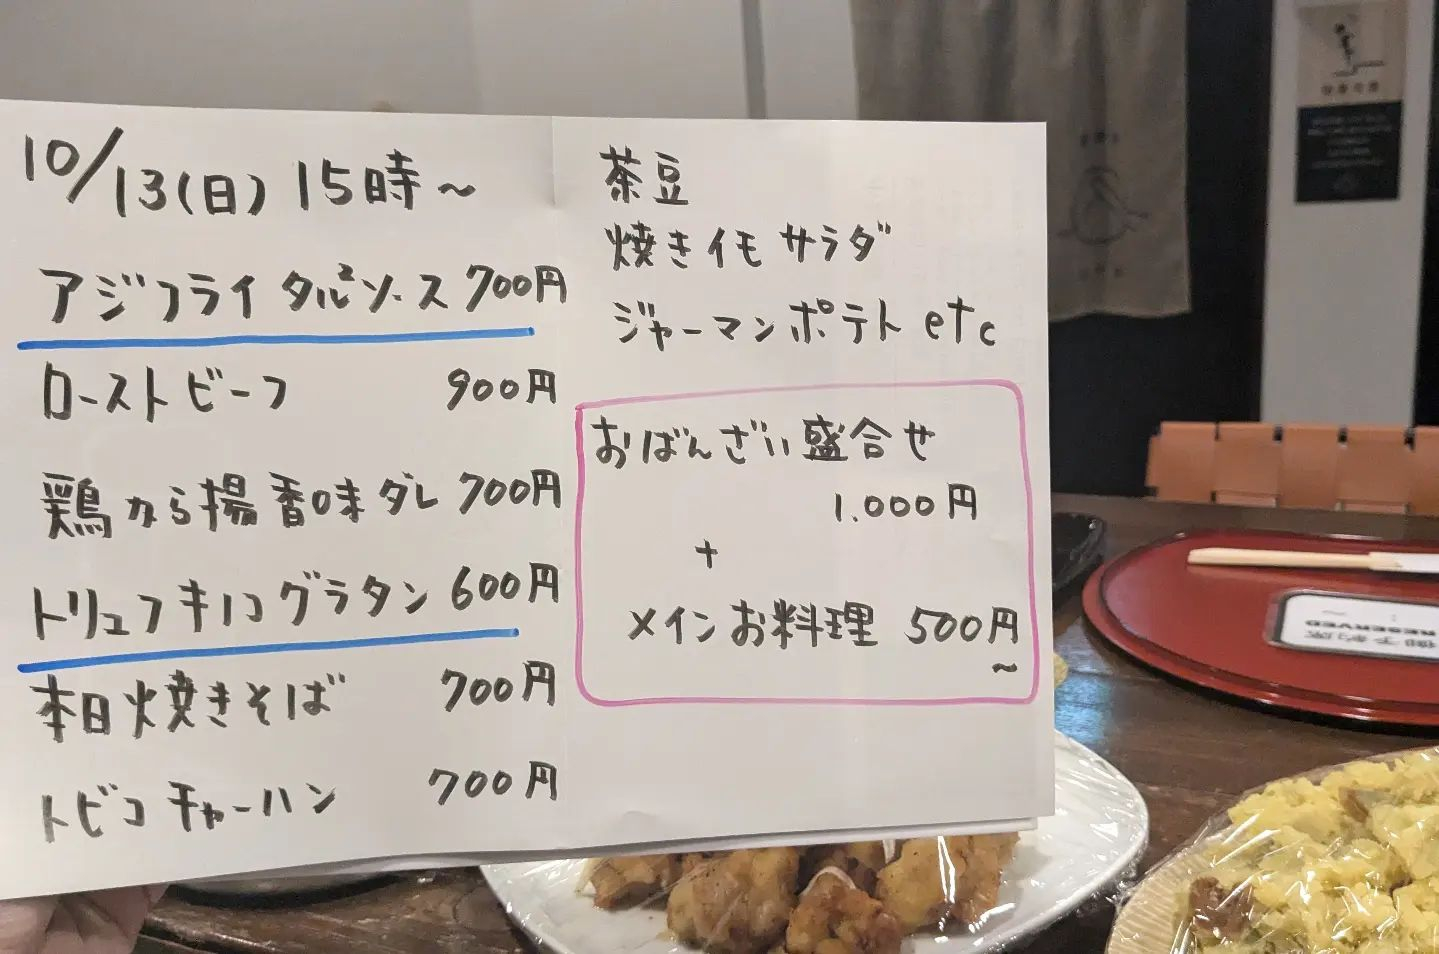 10/13(日) 15時~
アジフライ タル²ソース 700円
ローストビーフ 900円
鶏から揚 香味ダレ 700円
トリュフキノコグラタン 600円
本日焼きそば 700円
トビコチャーハン 700円
茶豆
焼きイモサラダ
ジャーマンポテト etc
おばんざい盛合せ
1.000円
+
メインお料理 500円
~
御予約席
RESERVED